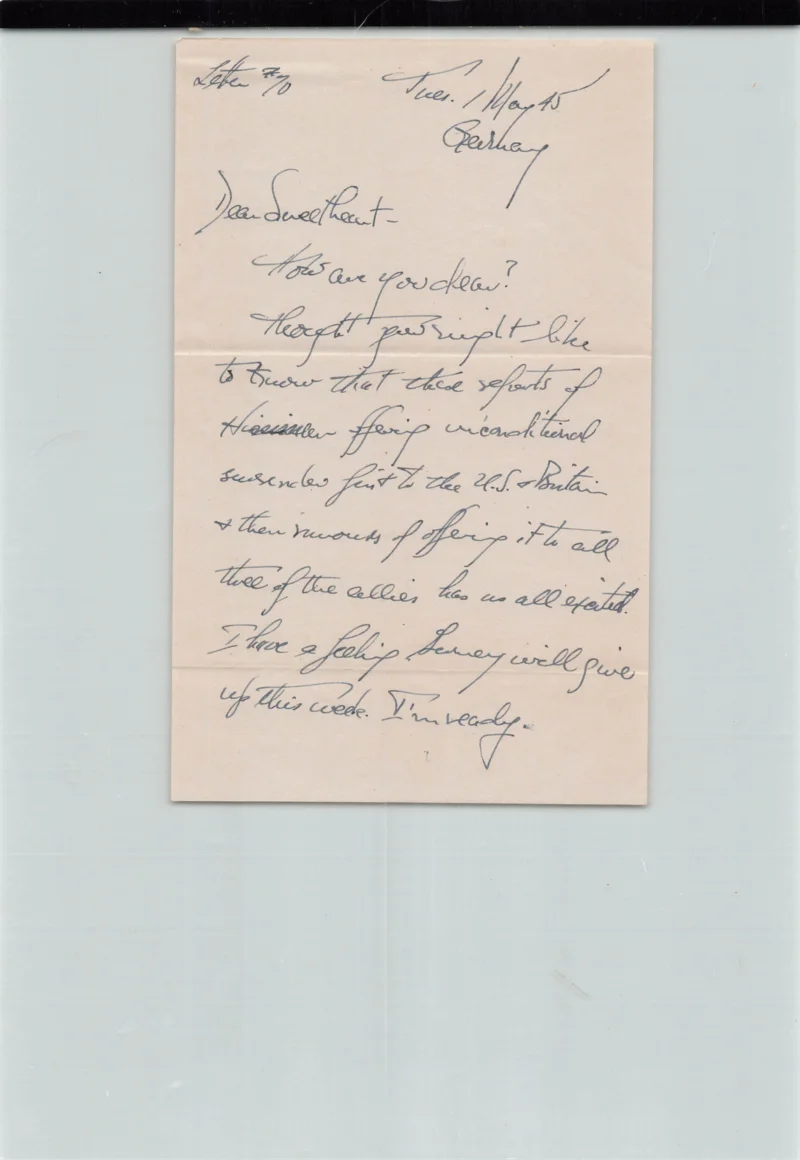 Letter #70
Tues. 1 May 45
Germany
Dear Sweetheart-
How are you dear?
Thought you might like
to know that these reports of
Himmler offering unconditional
surrender first to the U.S. & Britain
& then rumours of offering it to all
three of the allies has us all excited.
I have a feeling Germany will give
up this week. I'm ready.